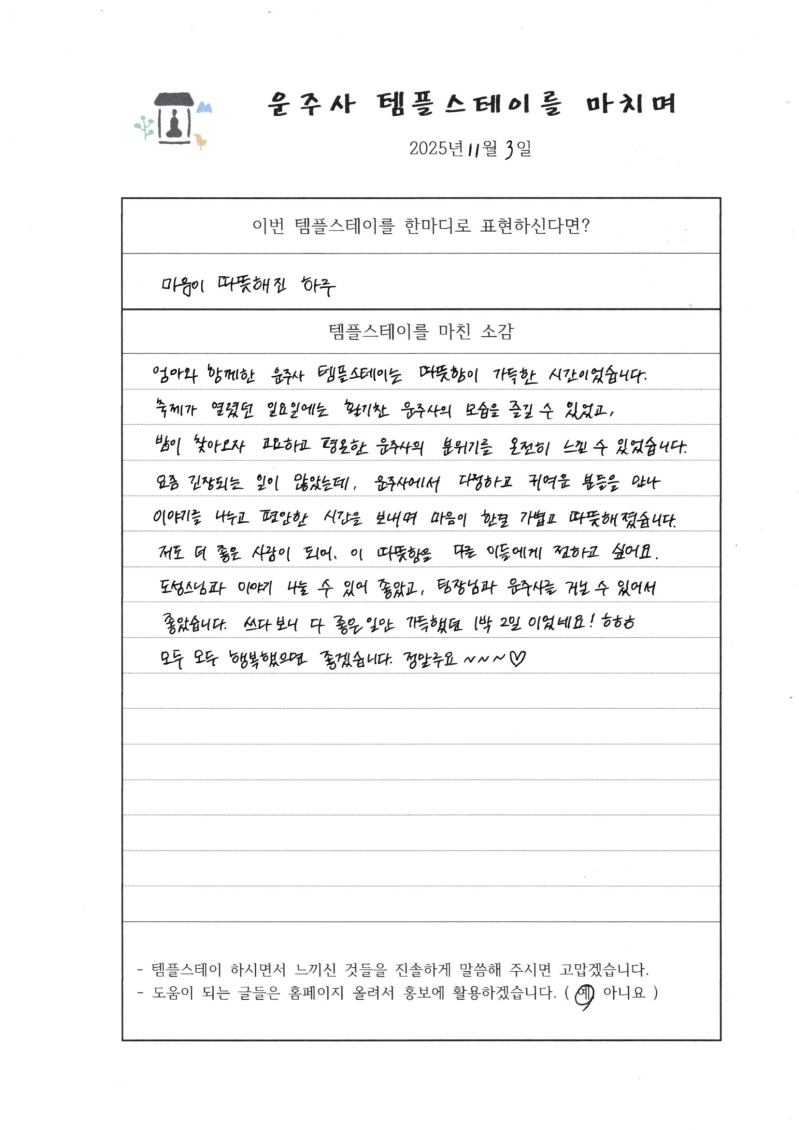 운주사 템플스테이를 마치며
2025년 11월 3일
이번 템플스테이를 한마디로 표현하신다면?
마음이 따뜻해진 하루
템플스테이를 마친 소감
엄마와 함께한 운주사 템플스테이는 따뜻함이 가득한 시간이었습니다.
축제가 열렸던 일요일에는 활기찬 운주사의 모습을 즐길 수 있었고,
밤이 찾아오자 고요하고 평온한 운주사의 분위기를 온전히 느낄 수 있었습니다.
요즘 긴장되는 일이 많았는데, 운주사에서 다정하고 귀여운 분들을 만나
이야기를 나누고 편안한 시간을 보내며 마음이 한결 가볍고 따뜻해졌습니다.
저도 더 좋은 사람이 되어, 이 따뜻함을 다른 이들에게 전하고 싶어요.
도성스님과 이야기 나눌 수 있어 좋았고, 팀장님과 운주사를 거닐 수 있어서
좋았습니다. 쓰다보니 다 좋은일만 가득했던 1박 2일 이었네요! ㅎㅎㅎ
모두 모두 행복했으면 좋겠습니다. 정말루요 ~~~♡
- 템플스테이 하시면서 느끼신 것들을 진솔하게 말씀해 주시면 고맙겠습니다.
- 도움이 되는 글들은 홈페이지 올려서 홍보에 활용하겠습니다. ( 예, 아니요 )